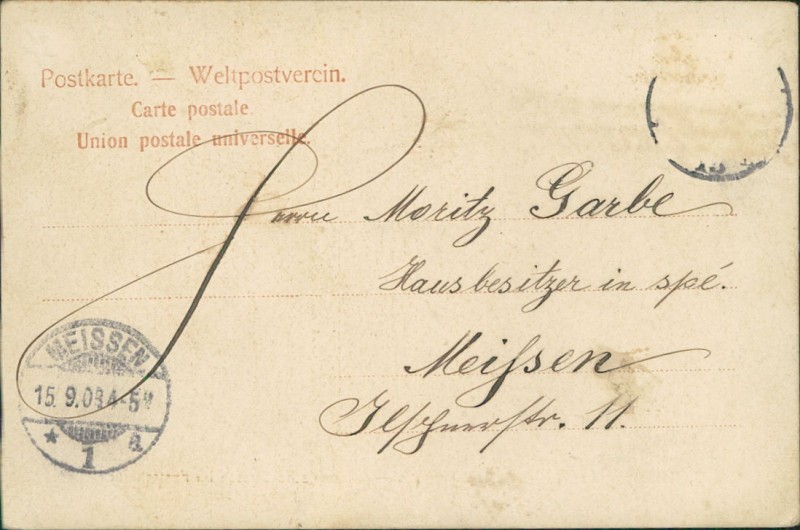 Postkarte. — Weltpostverein.
Carte postale.
Union postale universelle.
Herrn Moritz Garbe
Hausbesitzer in spé.
Meißen
str. 11.
MEISSEN
15. 9. 03 4-5N
* 1 a